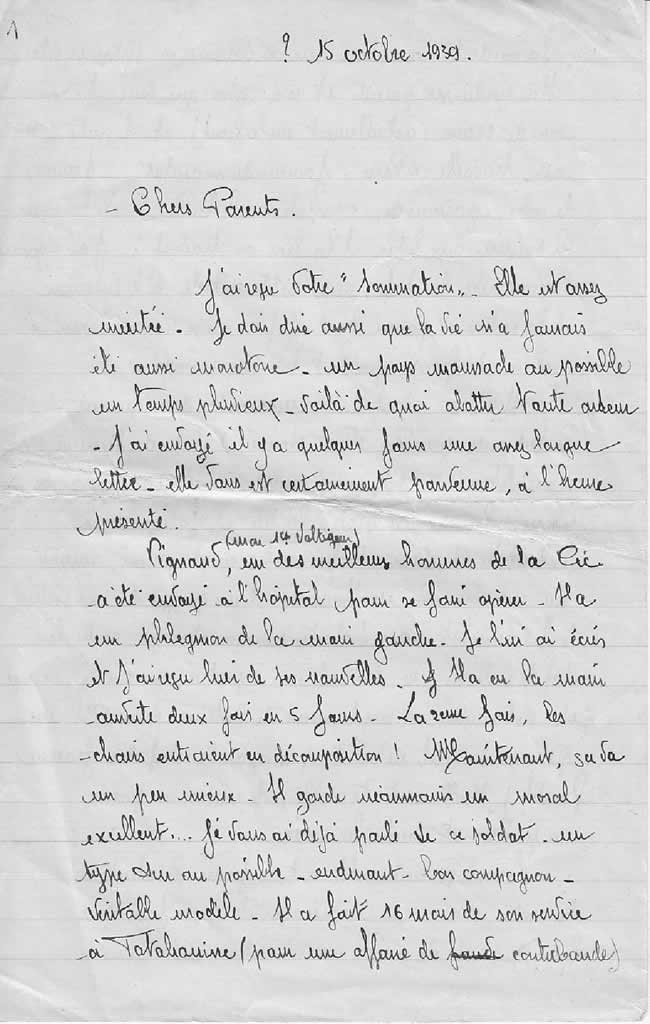 1
? 15 octobre 1939.
- Chers Parents.
J'ai reçu votre "Sommation". Elle est assez
méritée. Je dois dire aussi que la vie n'a jamais
été aussi monotone - un pays maussade au possible
un temps pluvieux - voilà de quoi abattre toute ardeur
- J'ai envoyé il y a quelques jours une assez longue
lettre - elle vous est certainement parvenue, à l'heure
présente.
(mon 1er Voltigeur)
Vignaud, un des meilleurs hommes de la Cie
a été envoyé à l'hôpital pour se faire opérer - Il a
un phlegmon de la main gauche. Je lui ai écris
et j'ai reçu hier de ses nouvelles. Il a eu la main
ouverte deux fois en 5 jours - La 2eme fois, les
chairs entraient en décomposition ! Maintenant, ça va
un peu mieux - Il garde néanmoins un moral
excellent... Je vous ai déjà parlé de ce soldat - un
type sûr au possible - endurant - bon compagnon -
véritable modèle - Il a fait 16 mois de son service
à Tatahouine (pour une affaire de fraude contrebande)